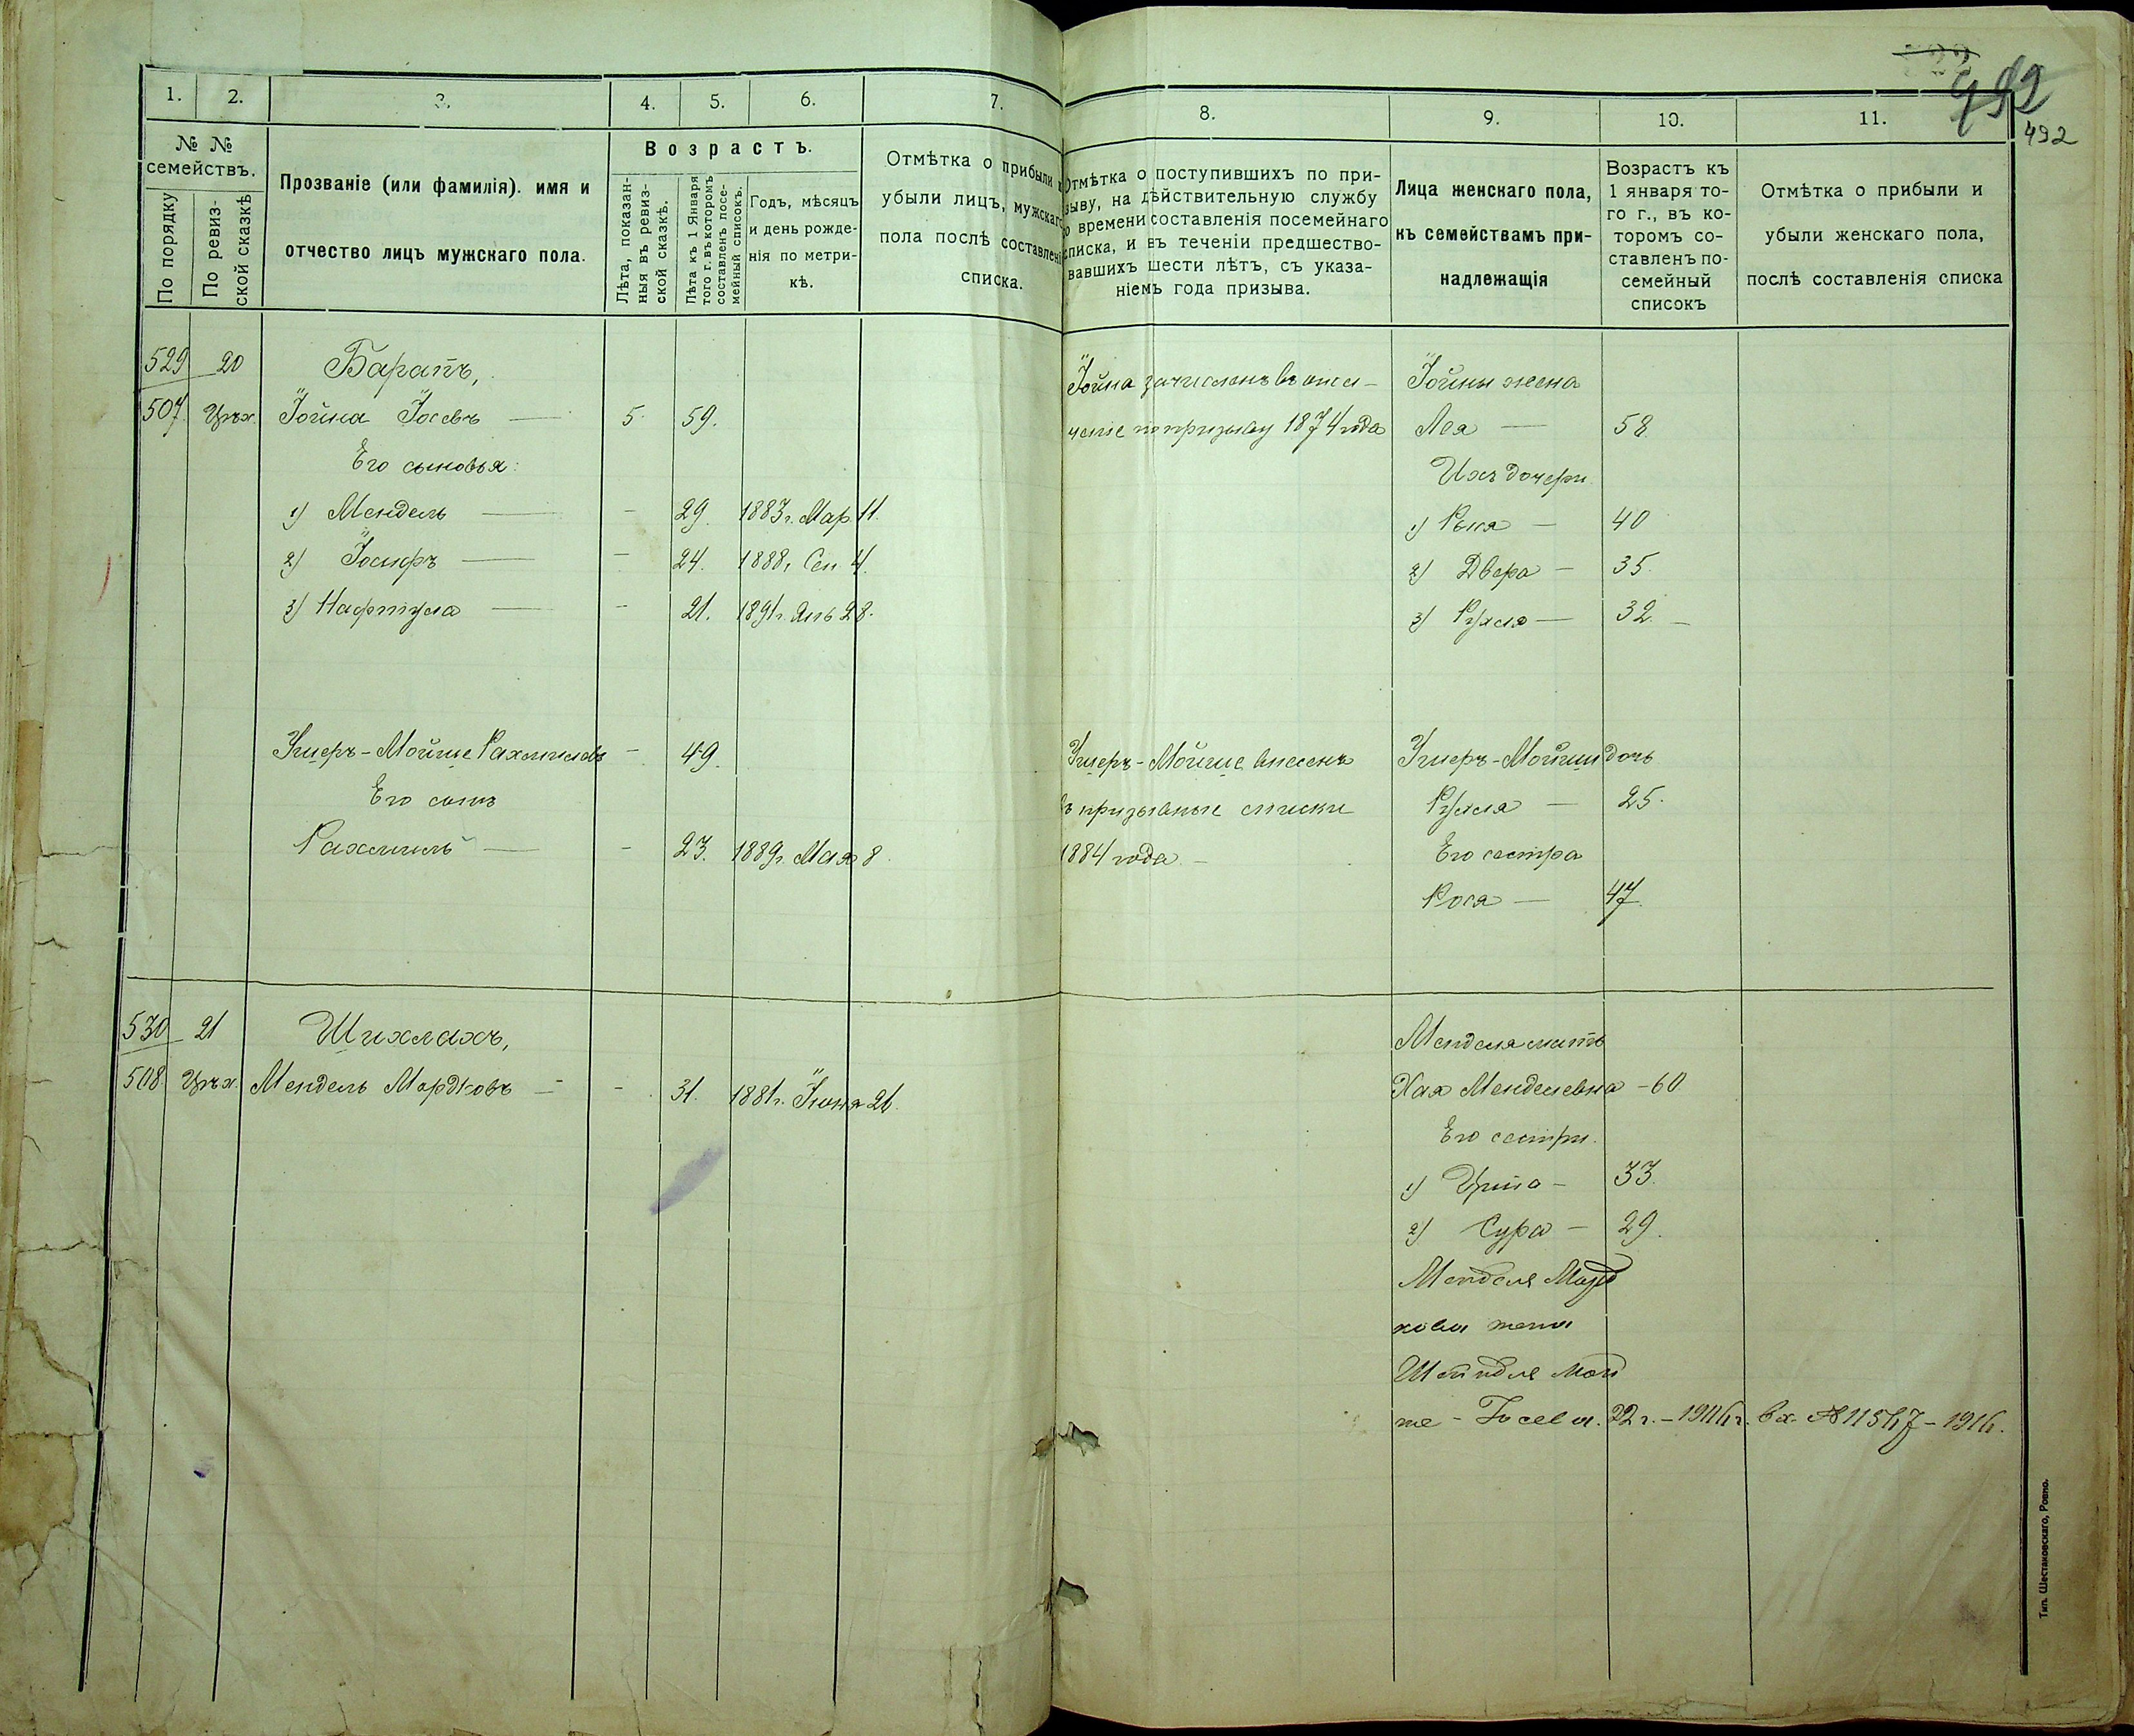 492
492
1.
2.
3.
4.
5.
6.
7.
8.
9.
10.
11.
№ №
семействъ.
По порядку
По ревиз-
ской сказкѣ
Прозваніе (или фамилія). имя и
отчество лицъ мужскаго пола.
Возрастъ.
Лѣта, показан-
ныя въ ревиз-
ской сказкѣ.
Лѣта къ 1 Января
того г. въ которомъ
составленъ посе-
мейный списокъ.
Годъ, мѣсяцъ
и день рожде-
нія по метри-
кѣ.
Отмѣтка о прибыли и
убыли лицъ, мужскаго
пола послѣ составленія
списка.
Отмѣтка о поступившихъ по при-
зыву, на дѣйствительную службу
о времени составленія посемейнаго
списка, и въ теченіи предшество-
вавшихъ шести лѣтъ, съ указа-
ніемъ года призыва.
Лица женскаго пола,
къ семействамъ при-
надлежащія
Возрастъ къ
1 января то-
го г., въ ко-
торомъ со-
ставленъ по-
семейный
списокъ
Отмѣтка о прибыли и
убыли женскаго пола,
послѣ составленія списка
529 20 Баратъ,
507 Іойна Іосевъ — 5 59.
Его сыновья:
1) Мендель — - 29. 1883 г. Мар. 11.
2) Іосифъ — - 24. 1888 г. Сен. 4.
3) Нафтула — - 21. 1891 г. Янв 28.
Іойна зачисленъ въ опол-
ченіе по призыву 1874 года
Іойны жена
Лея — 58.
Ихъ дочери
1) Рыкя — 40
2) Двера — 35.
3) Рухля — 32.
Ушеръ-Мойше Рахмилевъ - 49.
Его сынъ
Рахмиль — - 23. 1889 г. Мая 8.
Ушеръ-Мойше внесенъ
въ призывные списки
1884 года
Ушеръ-Мойши дочь
Рухля — 25.
Его сестра
Рося — 47.
530 21 Шихлахъ,
508 Мендель Мордковъ — - 31. 1881 г. Іюня 26.
Менделя мать
Хая Менделевна - 60
Его сестры.
1) 33.
2) Сура — 29.
Менделя Морд
кова жена
Шейндля Мой
ше-Іосева. 22 г. - 1916 г. вх. № 11567 - 1916.
Тип. Шестаковскаго, Ровно.